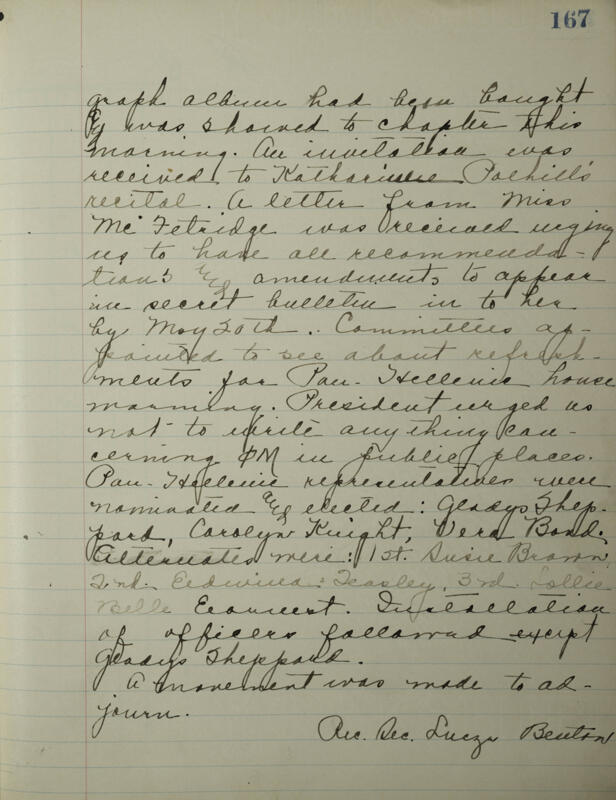 167
graph album had been bought
& was showed to chapter this
morning. An invitation was
received to Katharine Polhill's
recital. A letter from Miss
McFetridge was received urging
us to have all recommenda-
tions and amendments to appear
in secret bulletin in to her
by May 20th.. Committees ap-
pointed to see about refresh-
ments for Pan-Hellenic house
warming. President urged us
not to write anything con-
cerning ΦM in public places.
Pan-Hellenic representatives were
nominated and elected: Gladys Shep-
pard, Carolyn Knight, Vera Bond.
Alternates were: 1st. Susie Brown,
2nd. Eedwina Teasley, 3rd. Lollie
Belle. Installation
of officers followed except
Gladys Sheppard.
A movement was made to ad-
journ.
Rec. Sec. Benton